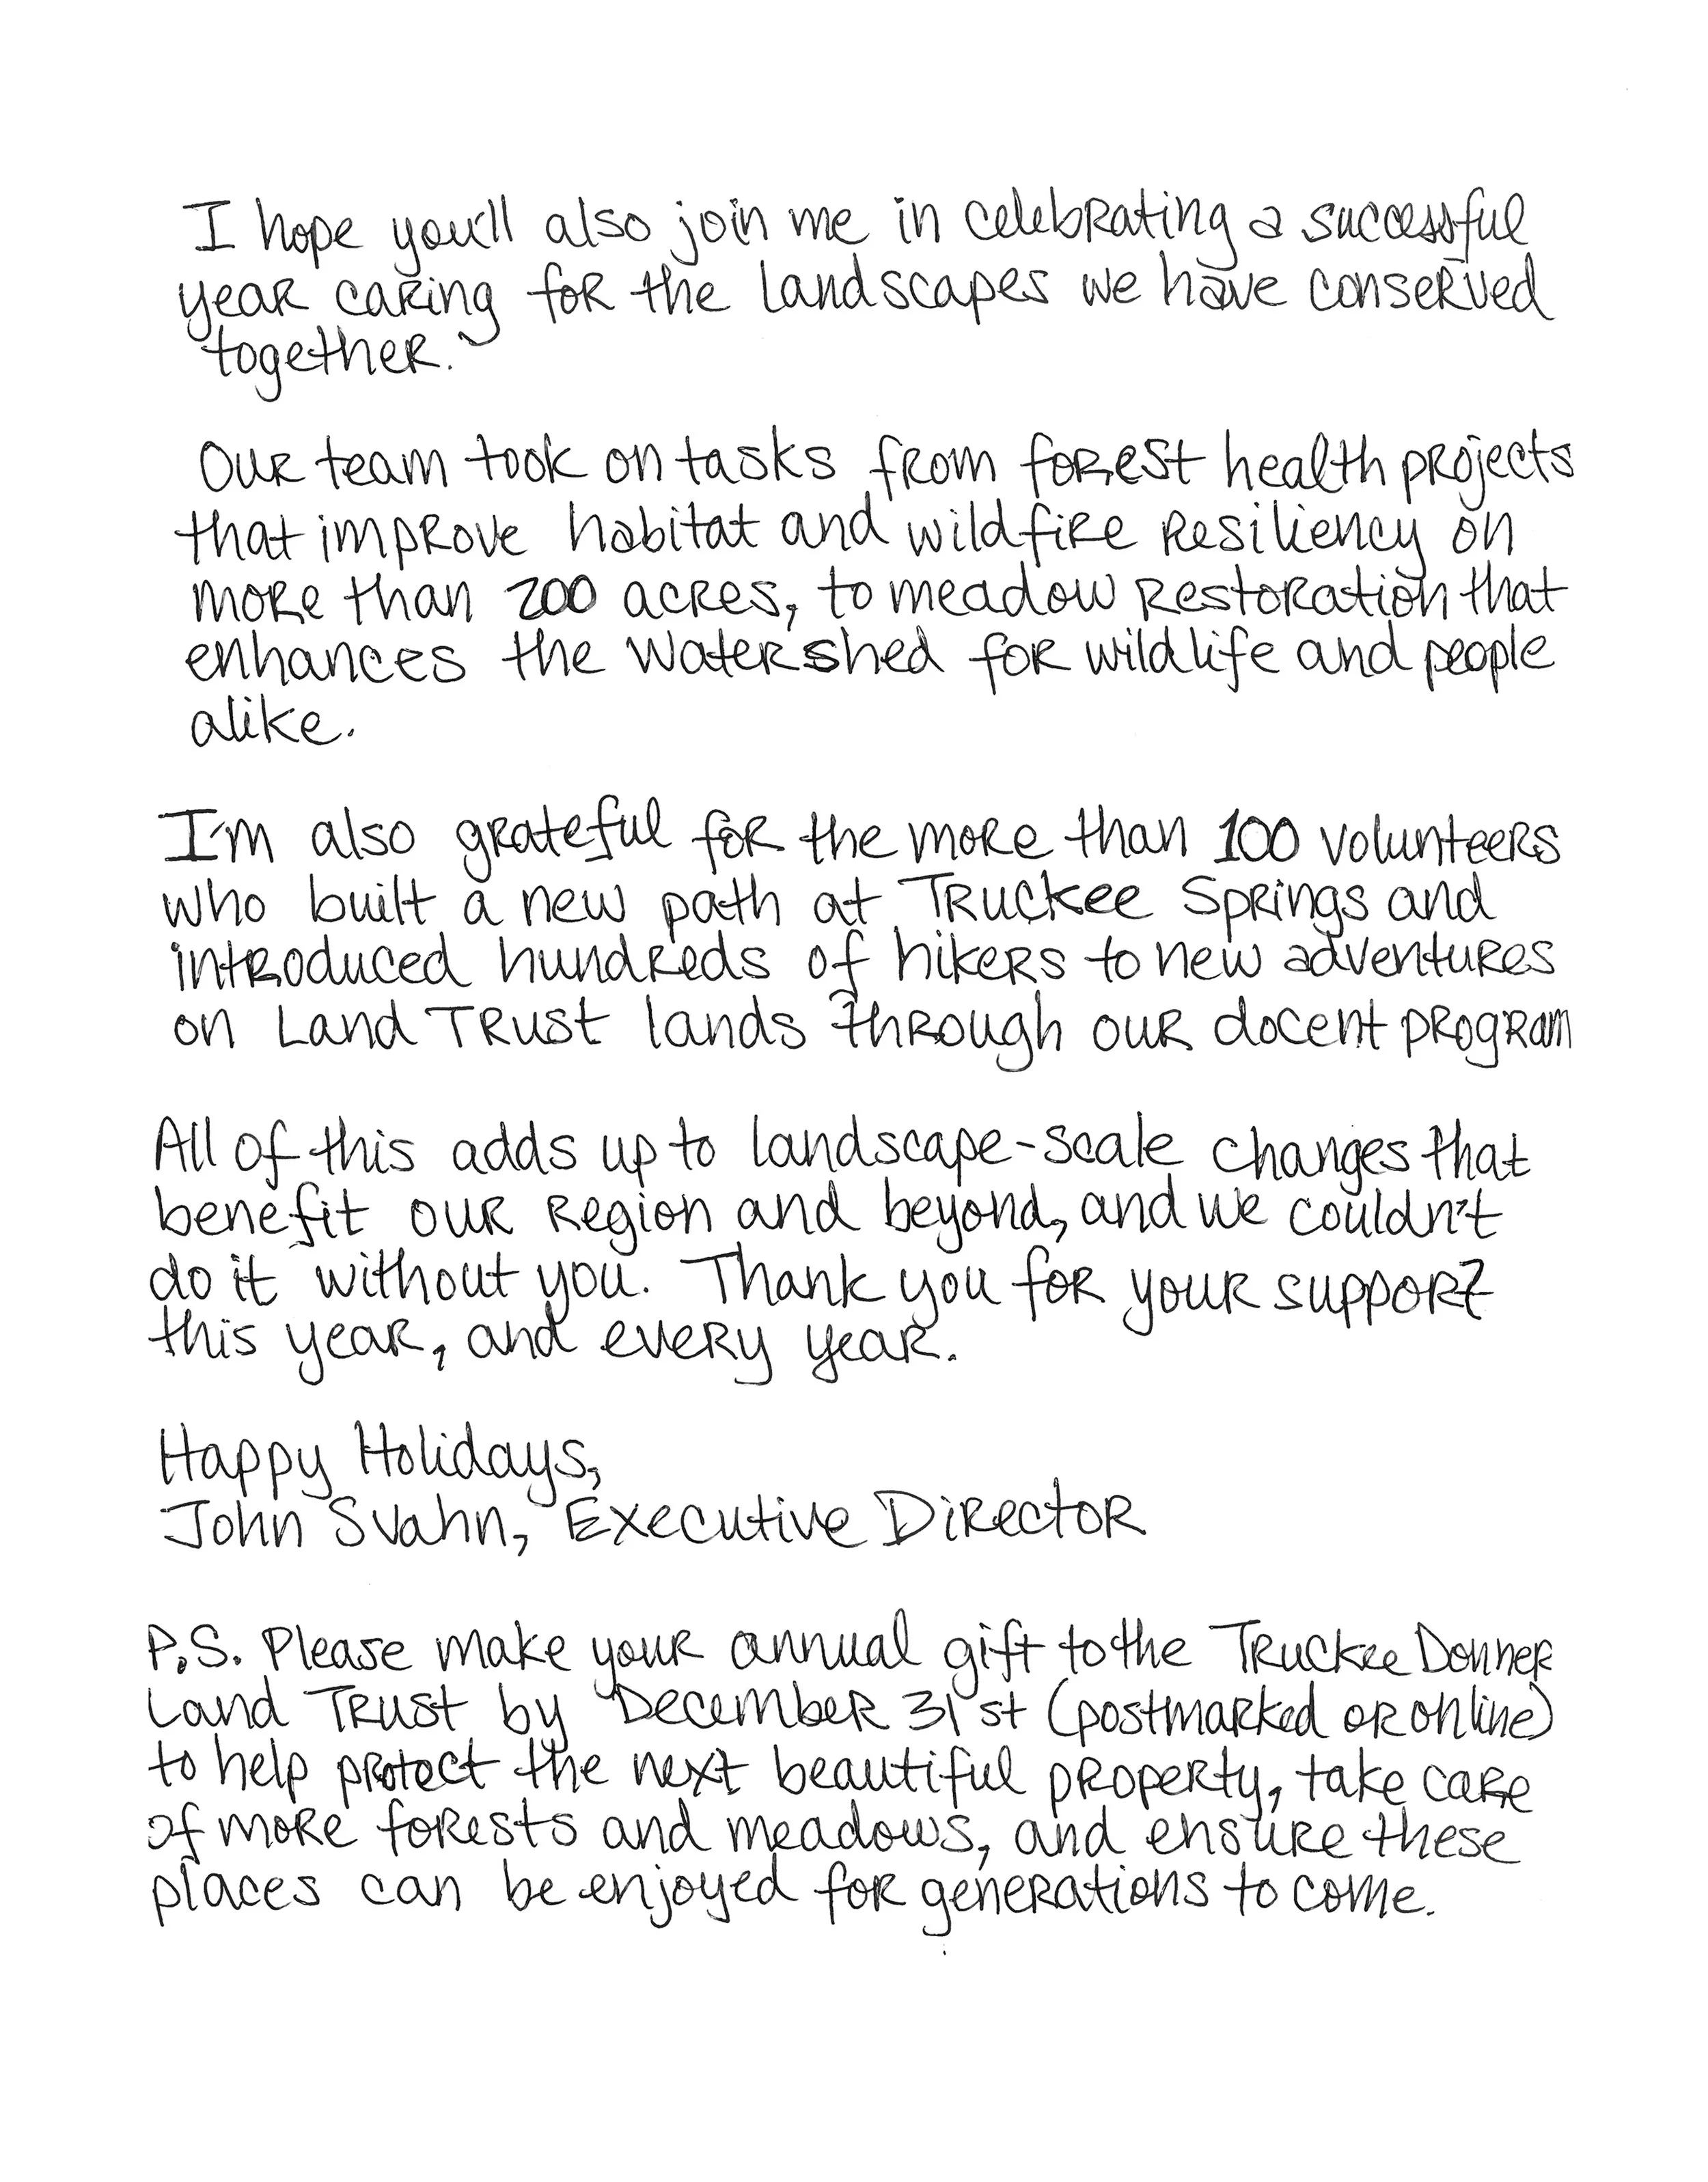 I hope you'll also join me in celebrating a successful
year caring for the landscapes we have conserved
together.
Our team took on tasks from forest health projects
that improve habitat and wildfire resiliency on
more than 200 acres, to meadow restoration that
enhances the watershed for wildlife and people
alike.
I'm also grateful for the more than 100 volunteers
who built a new path at Truckee Springs and
introduced hundreds of hikers to new adventures
on Land Trust lands through our docent program
All of this adds up to landscape-scale changes that
benefit our region and beyond, and we couldn't
do it without you. Thank you for your support
this year, and every year.
Happy Holidays,
John Svahn, Executive Director
P.S. Please make your annual gift to the Truckee Donner
Land Trust by December 31st (postmarked or online)
to help protect the next beautiful property, take care
of more forests and meadows, and ensure these
places can be enjoyed for generations to come.